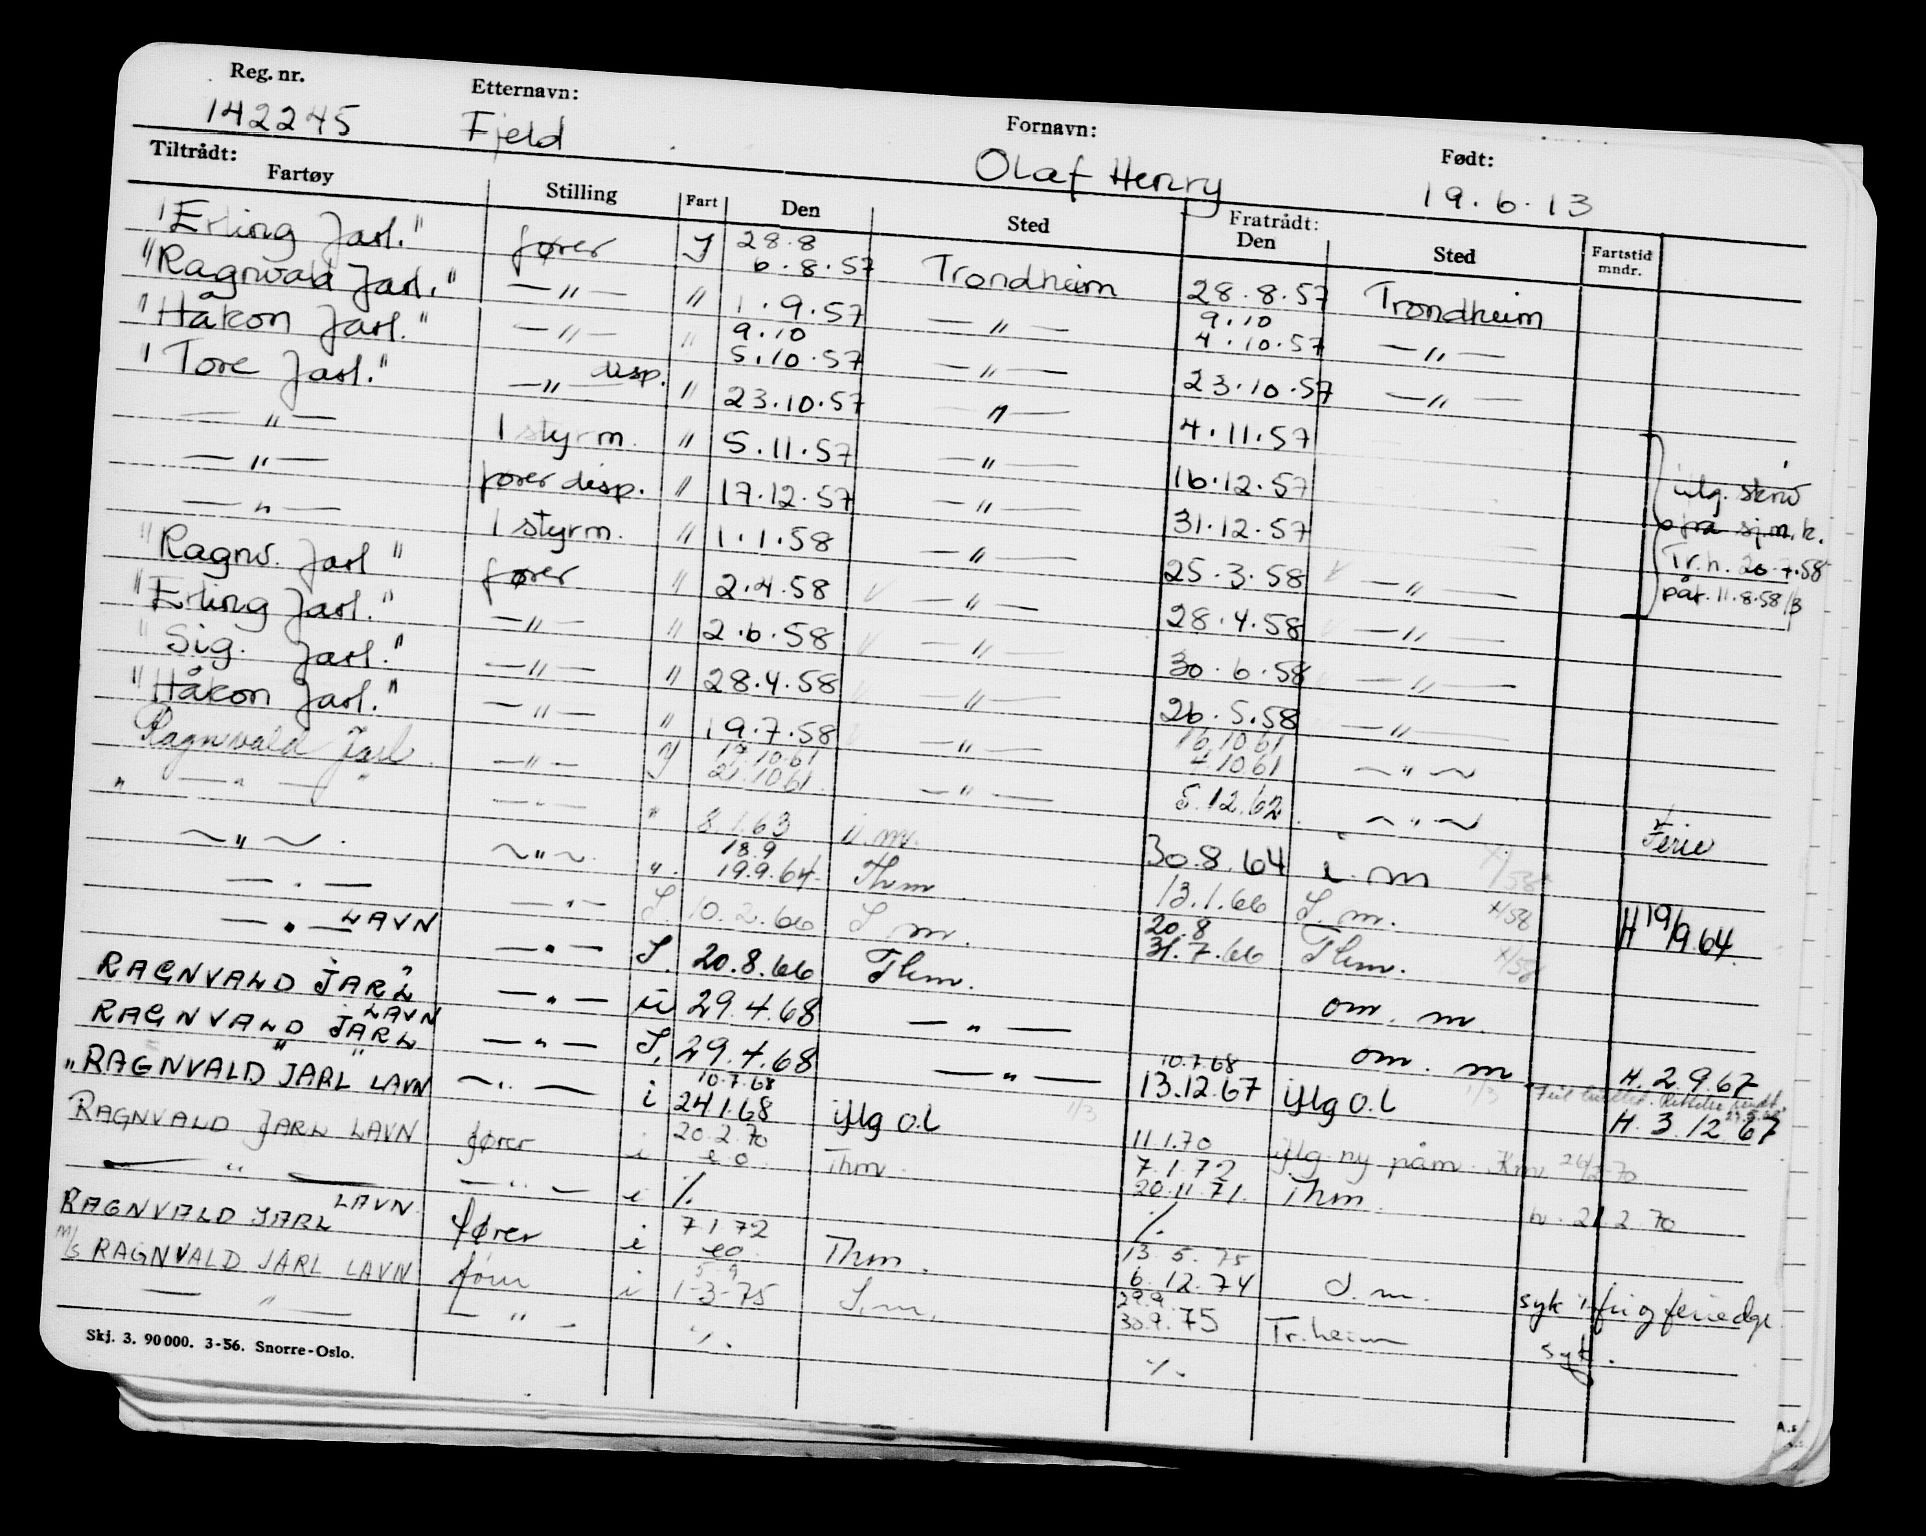 Reg. nr. Etternavn: Fornavn: Født:
142245 Fjeld Olaf Henry 19.6.13
Tiltrådt: Fratrådt:
Fartøy Stilling Fart Den Sted Den Sted Fartstid mndr.
"Erling Jarl." fører 28.8 6.8.57 Trondheim 28.8.57 Trondheim
"Ragnvald Jarl." —"— " 1.9.57 —"— 9.10 4.10.57 —"—
"Håkon Jarl." —"— " 9.10 5.10.57 —"— 23.10.57 —"—
"Tore Jarl." —"— disp. " 23.10.57 —"— 4.11.57
—"— 1 styrm. " 5.11.57 —"— 16.12.57
—"— fører disp. " 17.12.57 —"— 31.12.57
—"— 1 styrm. " 1.1.58 —"— 25.3.58 —"—
iflg. skriv
fra sj.m.k.
Tr.h. 26.7.58
påt. 11.8.58
"Ragnv. Jarl" fører " 2.4.58 —"— 28.4.58 —"—
"Erling Jarl." —"— " 2.6.58 —"— 30.6.58 —"—
"Sig. Jarl." —"— " 28.4.58 —"— 26.5.58 —"—
"Håkon Jarl." —"— " 19.7.58 —"— 16.10.61 4.10.61 —"—
Ragnvald Jarl —"— 17.10.61 21.10.61 —"— 5.12.62 —"— Ferie
" —"— " —"— " 8.1.63 i.m. 30.8.64 i.m
—"— —"— " 18.9 19.9.64 Thm 13.1.66 I.m. x/58 H 19/9.64
—"— —"— I. 10.2.66 I m. 20.8 31.7.66 Thm. x/58
—"— LAVN —"— I. 20.8.66 Thm. om. m.
RAGNVALD JARL —"— ii 29.4.68 —"— om. m H. 2.9.67
RAGNVALD JARL LAVN —"— I. 29.4.68 —"— 10.7.68 13.12.67 iflg o.l H. 3.12.67
"RAGNVALD JARL" LAVN —"— i 10.7.68 24.1.68 iflg o.l 11.1.70 iflg ny påm. 26/2-70
RAGNVALD JARL LAVN fører i 20.2.70 e.o. Thm. 7.1.72 20.11.71. Thm. h. 21 2.70
—"— —"— i %. %.
RAGNVALD JARL LAVN fører i 7.1.72 eo. Thm. 13.5.75 6.12.74 I.m. syk, fri og feriedge
M/S RAGNVALD JARL LAVN fører i 5.9 1-3-75 I.m. 29.9. 30.9.75 Tr.heim syk.
—"— —"— %. %.
Skj. 3. 90000. 3-56. Snorre-Oslo.